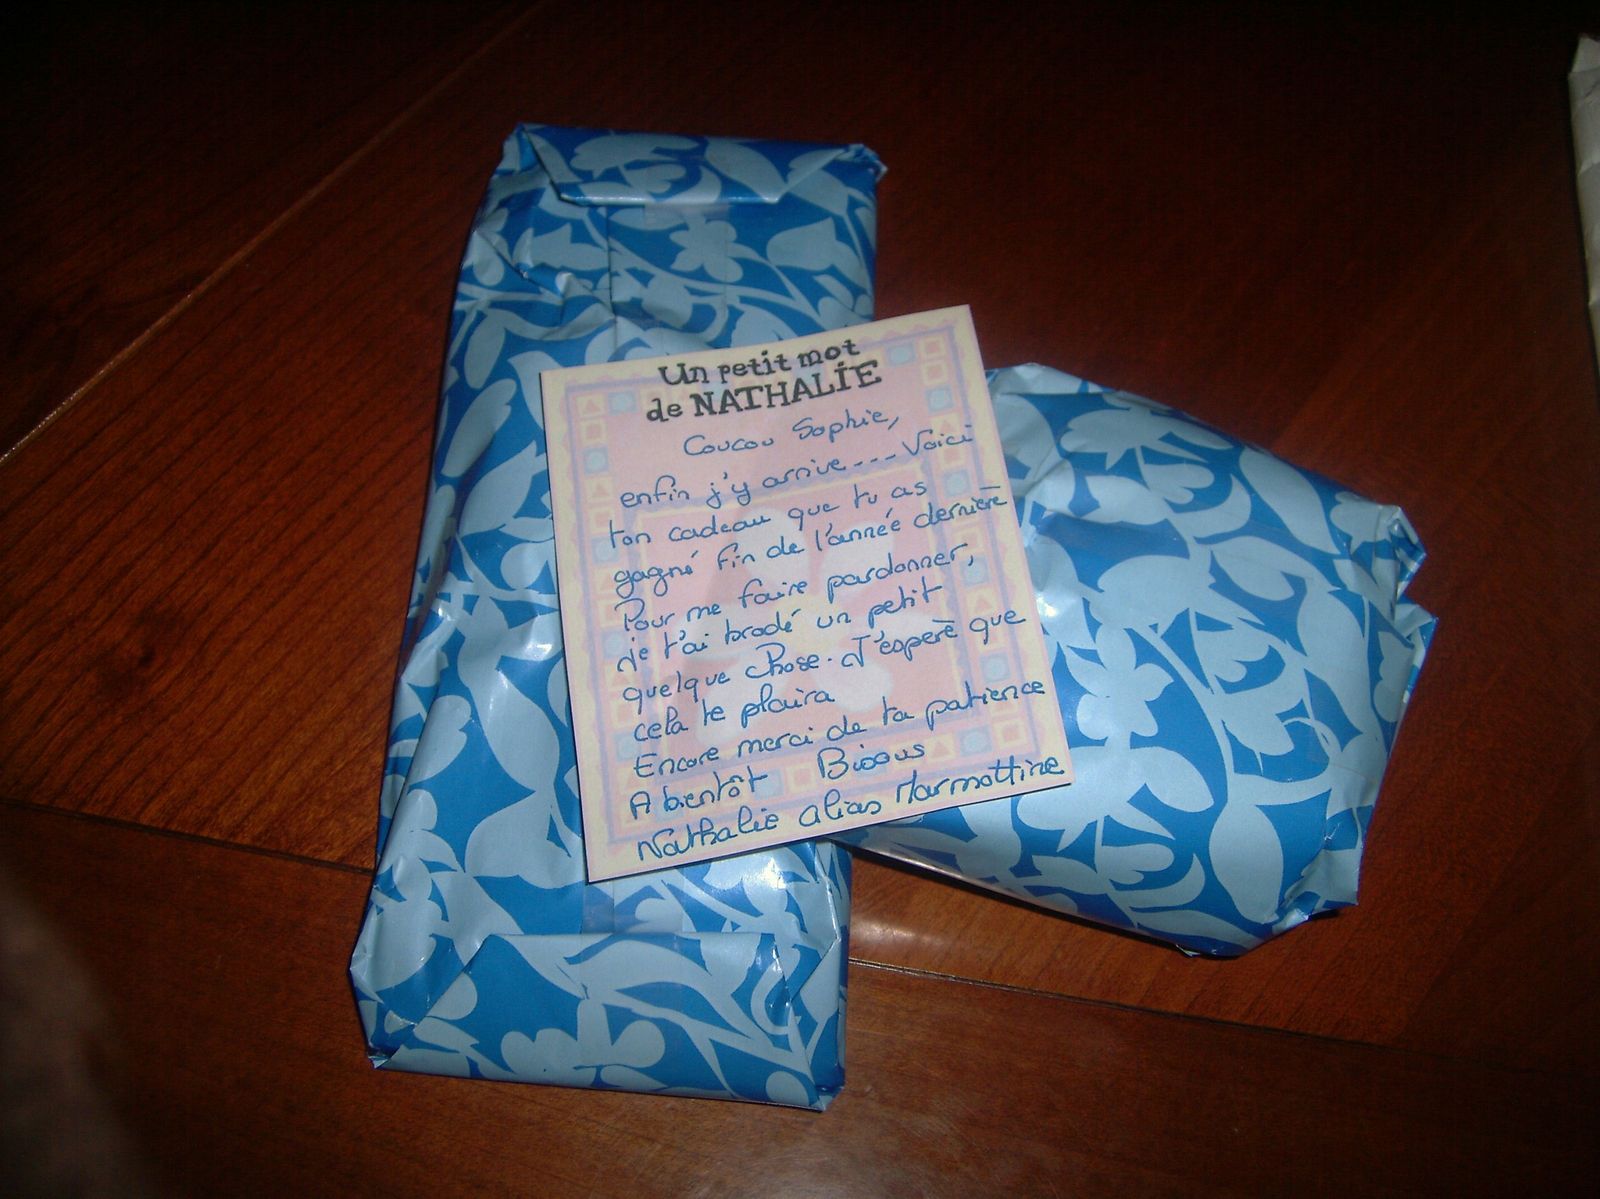 Un petit mot
de NATHALIE
Coucou Sophie,
enfin j'y arrive --- Voici
ton cadeau que tu as
gagné fin de l'année dernière
Pour me faire pardonner,
je t'ai brodé un petit
quelque chose. J'espère que
cela te plaira
Encore merci de ta patience
A bientôt Bisous
Nathalie alias Marmottine